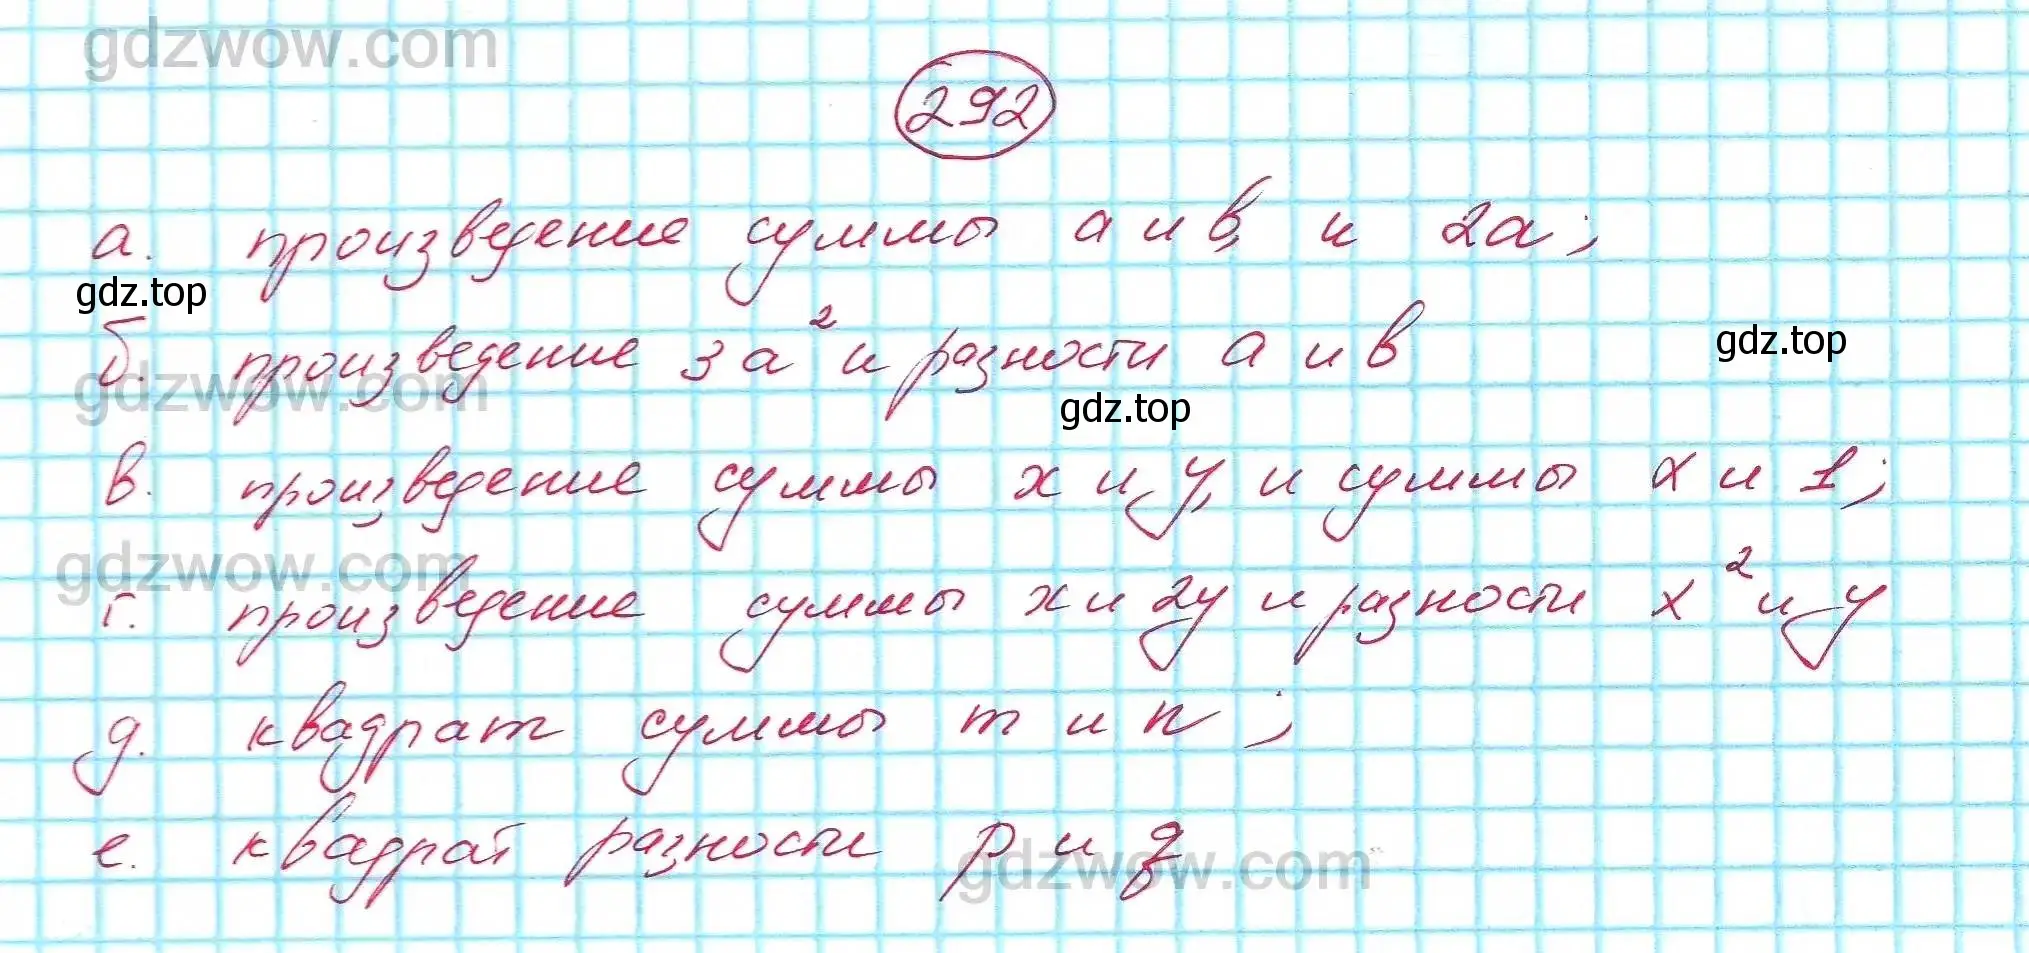 gdzwow.com
292
а. произведение суммы a и b, и 2a;
gdz.top
б. произведение 3a² и разности a и b
gdz.top
gdzwow.com
gdz.top
в. произведение суммы x и y, и суммы x и 1;
gdzwow.com
г. произведение суммы x и 2y и разности x² и y
д. квадрат суммы m и n;
е. квадрат разности p и q
gdzwow.com